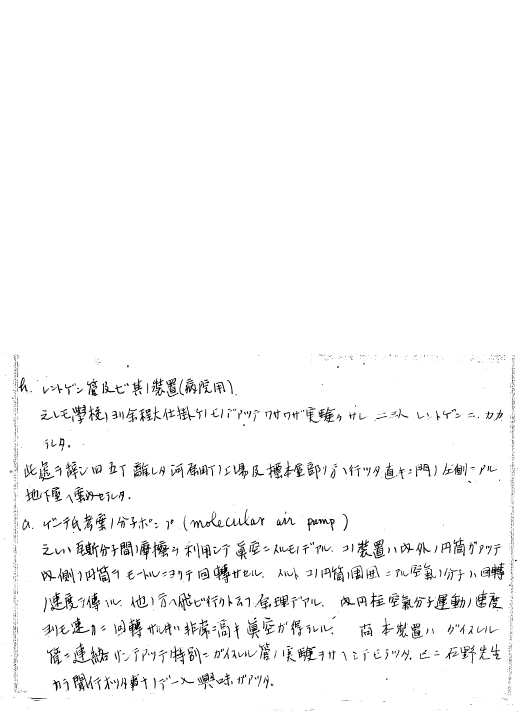 h. レントゲン管及ビ其ノ装置(病院用).
之レモ學校ノヨリ余程大仕掛ケノモノデアッテワザワザ実験ヲサレ 二三人レントゲンニカカ
ラレタ.
此處ヲ辞シ四五丁離レタ河原町ノ工場及標本室部ノ方ヘ行ッタ直キニ門ノ左側ニアル
地下室ヘ案内セラレタ.
a. ゲーデ氏考案ノ分子ポンプ (molecular air pump)
之レハ瓦斯分子間ノ摩擦ヲ利用シテ眞空ニスルモノデアル. コノ装置ハ内外ノ円筒ガアッテ
内側ノ円筒ヲモートルニヨッテ回轉サセル. スルトコノ円筒ノ周囲ニアル空氣ノ分子ハ回轉
ノ速度ヲ傳ハル. 他ノ方ヘ飛ビ行クト云フ原理デアル. 内円柱空氣分子運動ノ速度
ヨリモ速カニ回轉サレルハ非常ニ高キ眞空ガ得ラレル. 尚本装置ハガイスレル
管ニ連絡シテアッテ特別ニガイスレル管ノ実験ヲ 石野先生
カラ聞イテ 興味ガアッタ.